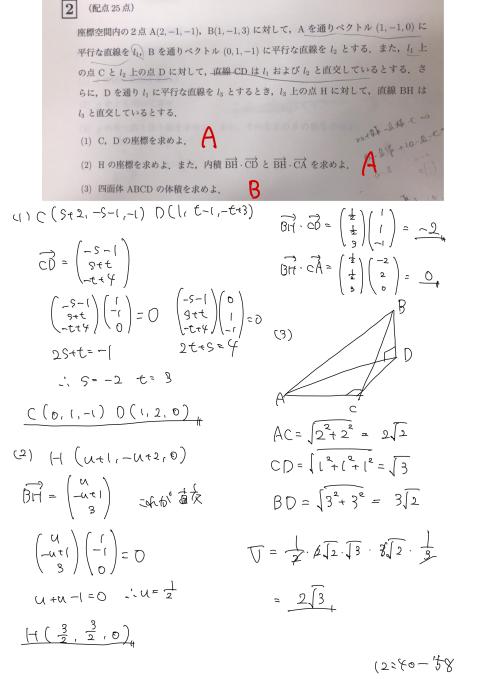 2 (配点25点)
座標空間内の2点 A(2, -1, -1), B(1, -1, 3) に対して, A を通りベクトル (1, -1, 0) に
平行な直線を l₁, B を通りベクトル (0, 1, -1) に平行な直線を l₂ とする. また, l₁ 上
の点 C と l₂ 上の点 D に対して, 直線 CD は l₁ および l₂ と直交しているとする. さ
らに, D を通り l₁ に平行な直線を l₃ とするとき, l₃ 上の点 H に対して, 直線 BH は
l₃ と直交しているとする.
(1) C, D の座標を求めよ. A
(2) H の座標を求めよ. また, 内積 BH・CD と BH・CA を求めよ. A
(3) 四面体 ABCD の体積を求めよ. B
(1) C(s+2, -s-1, -1) D(1, t-1, -t+3)
CD = (-s-1, s+t, -t+4)
(-s-1, s+t, -t+4)(1, -1, 0) = 0 (-s-1, s+t, -t+4)(0, 1, -1) = 0
2s+t=-1 2t+s=4
∴ s=-2 t=3
C(0, 1, -1) D(1, 2, 0)
(2) H(u+1, -u+2, 0)
BH = (u, -u+1, 3)
(u, -u+1, 3)(1, -1, 0) = 0
u+u-1=0 ∴u=1/2
H(3/2, 3/2, 0)
BH・CD = (1/2, 1/2, 3)(1, 1, -1) = -2
BH・CA = (1/2, 1/2, 3)(-2, 2, 0) = 0
(3)
B
D
A
C
AC=√2²+2² = 2√2
CD=√1²+1²+1² =√3
BD=√3²+3² = 3√2
V = 1/2・2√2・√3・3√2・1/3
= 2√3